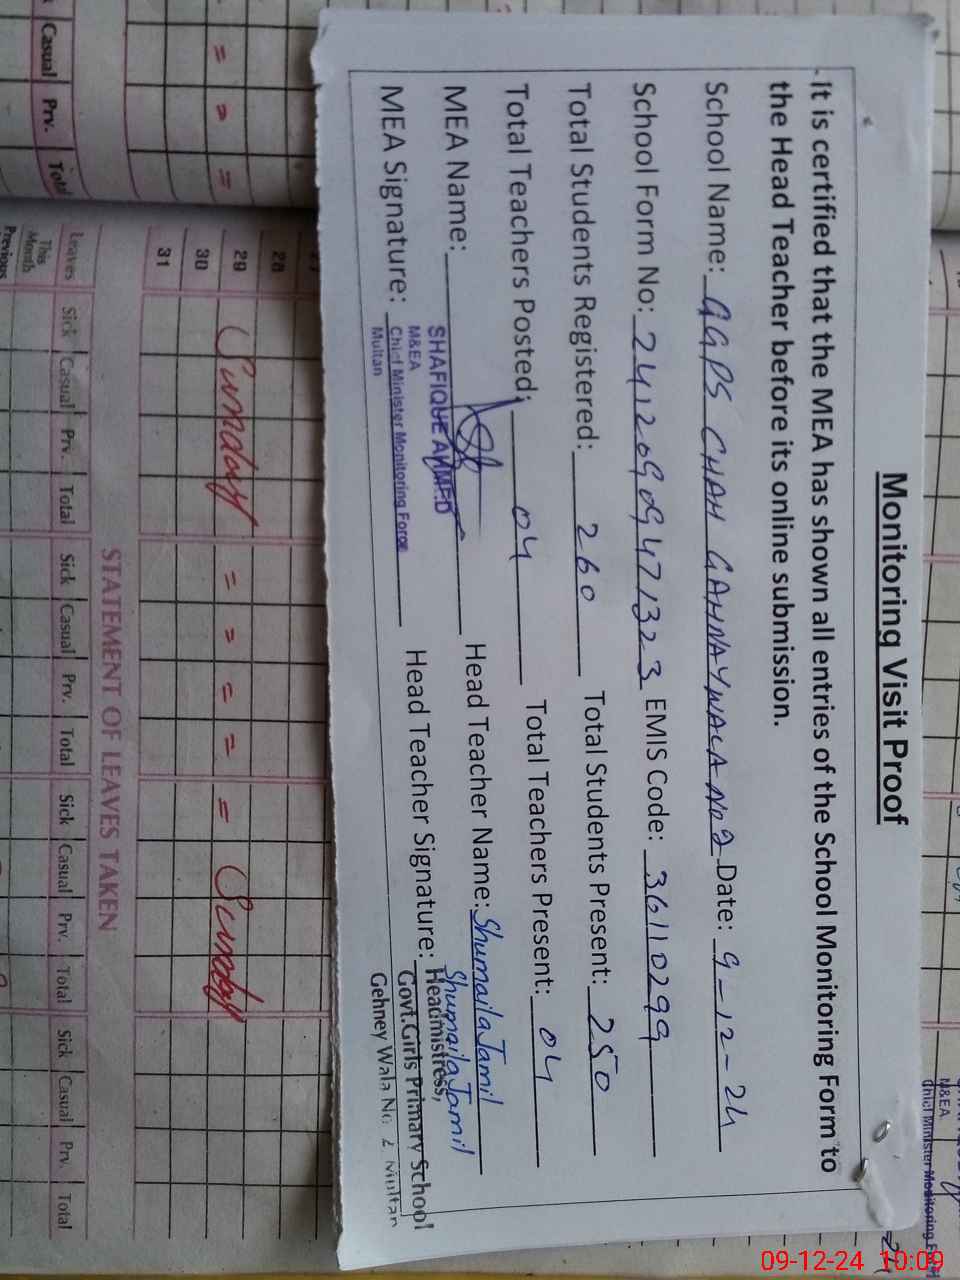 Monitoring Visit Proof
It is certified that the MEA has shown all entries of the School Monitoring Form to
the Head Teacher before its online submission.
School Name: GGPS CHAH GAHNAYWALA No 2 Date: 9-12-24
School Form No: 24120909471323 EMIS Code: 36110299
Total Students Registered: 260 Total Students Present: 250
Total Teachers Posted: 04 Total Teachers Present: 04
MEA Name: Head Teacher Name: Shumaila Jamil
SHAFIQUE AHMED
M&EA
MEA Signature: Chief Minister Monitoring Force
Multan
Head Teacher Signature: Shumaila Jamil
Headmistress,
Govt.Girls Primary School
Gehney Wala No. 2 Multan
M&EA
Chief Minister Monitoring
Casual Prv. Total
= = =
28
29 Sunday = = = = = Sunday
30
31
STATEMENT OF LEAVES TAKEN
Leaves Sick Casual Prv. Total Sick Casual Prv. Total Sick Casual Prv. Total Sick Casual Prv. Total
This
Month
Previous
09-12-24 10:09